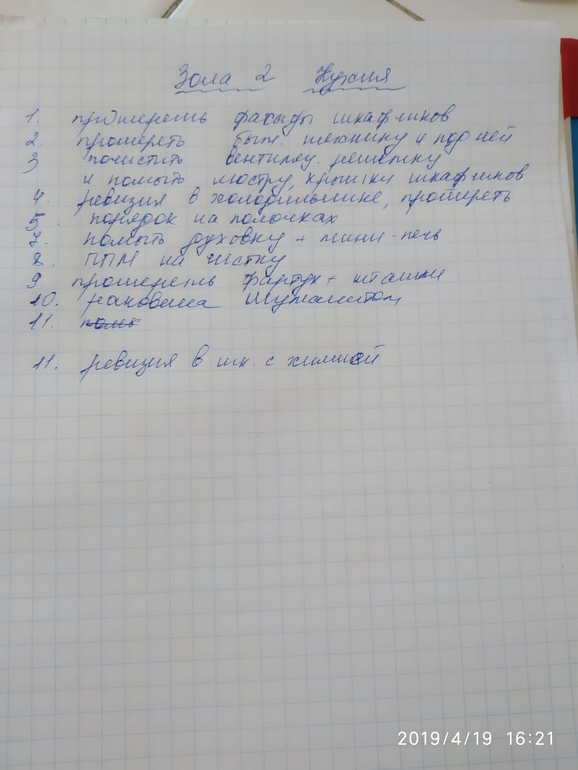 Зона 2 Кухня
1. протереть фасады шкафчиков
2. протереть быт. технику и под ней
3 почистить вентиляц. решетку
и помыть люстру, крышки шкафчиков
4. ревизия в холодильнике, протереть
5. порядок на полочках
7. помыть духовку + мини-печь
8. ПММ на чистку
9. протереть фартук + штанги
10. раковина Шуманитом
11.
11. ревизия в шк. с химией
2019/4/19 16:21